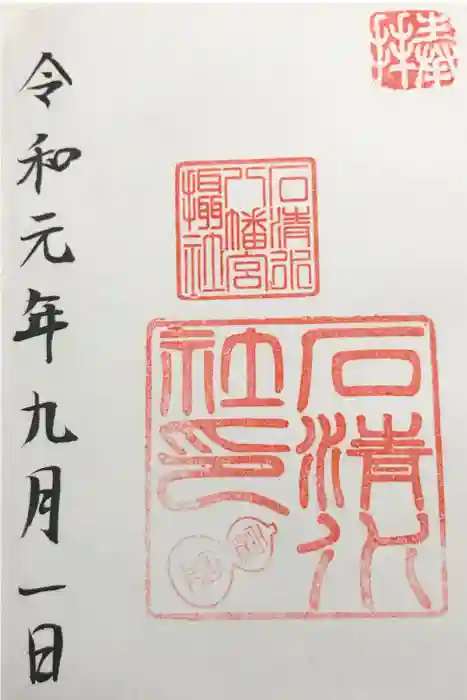 奉拝
石清水
八幡宮
攝社
石清水
社印
令和元年九月一日